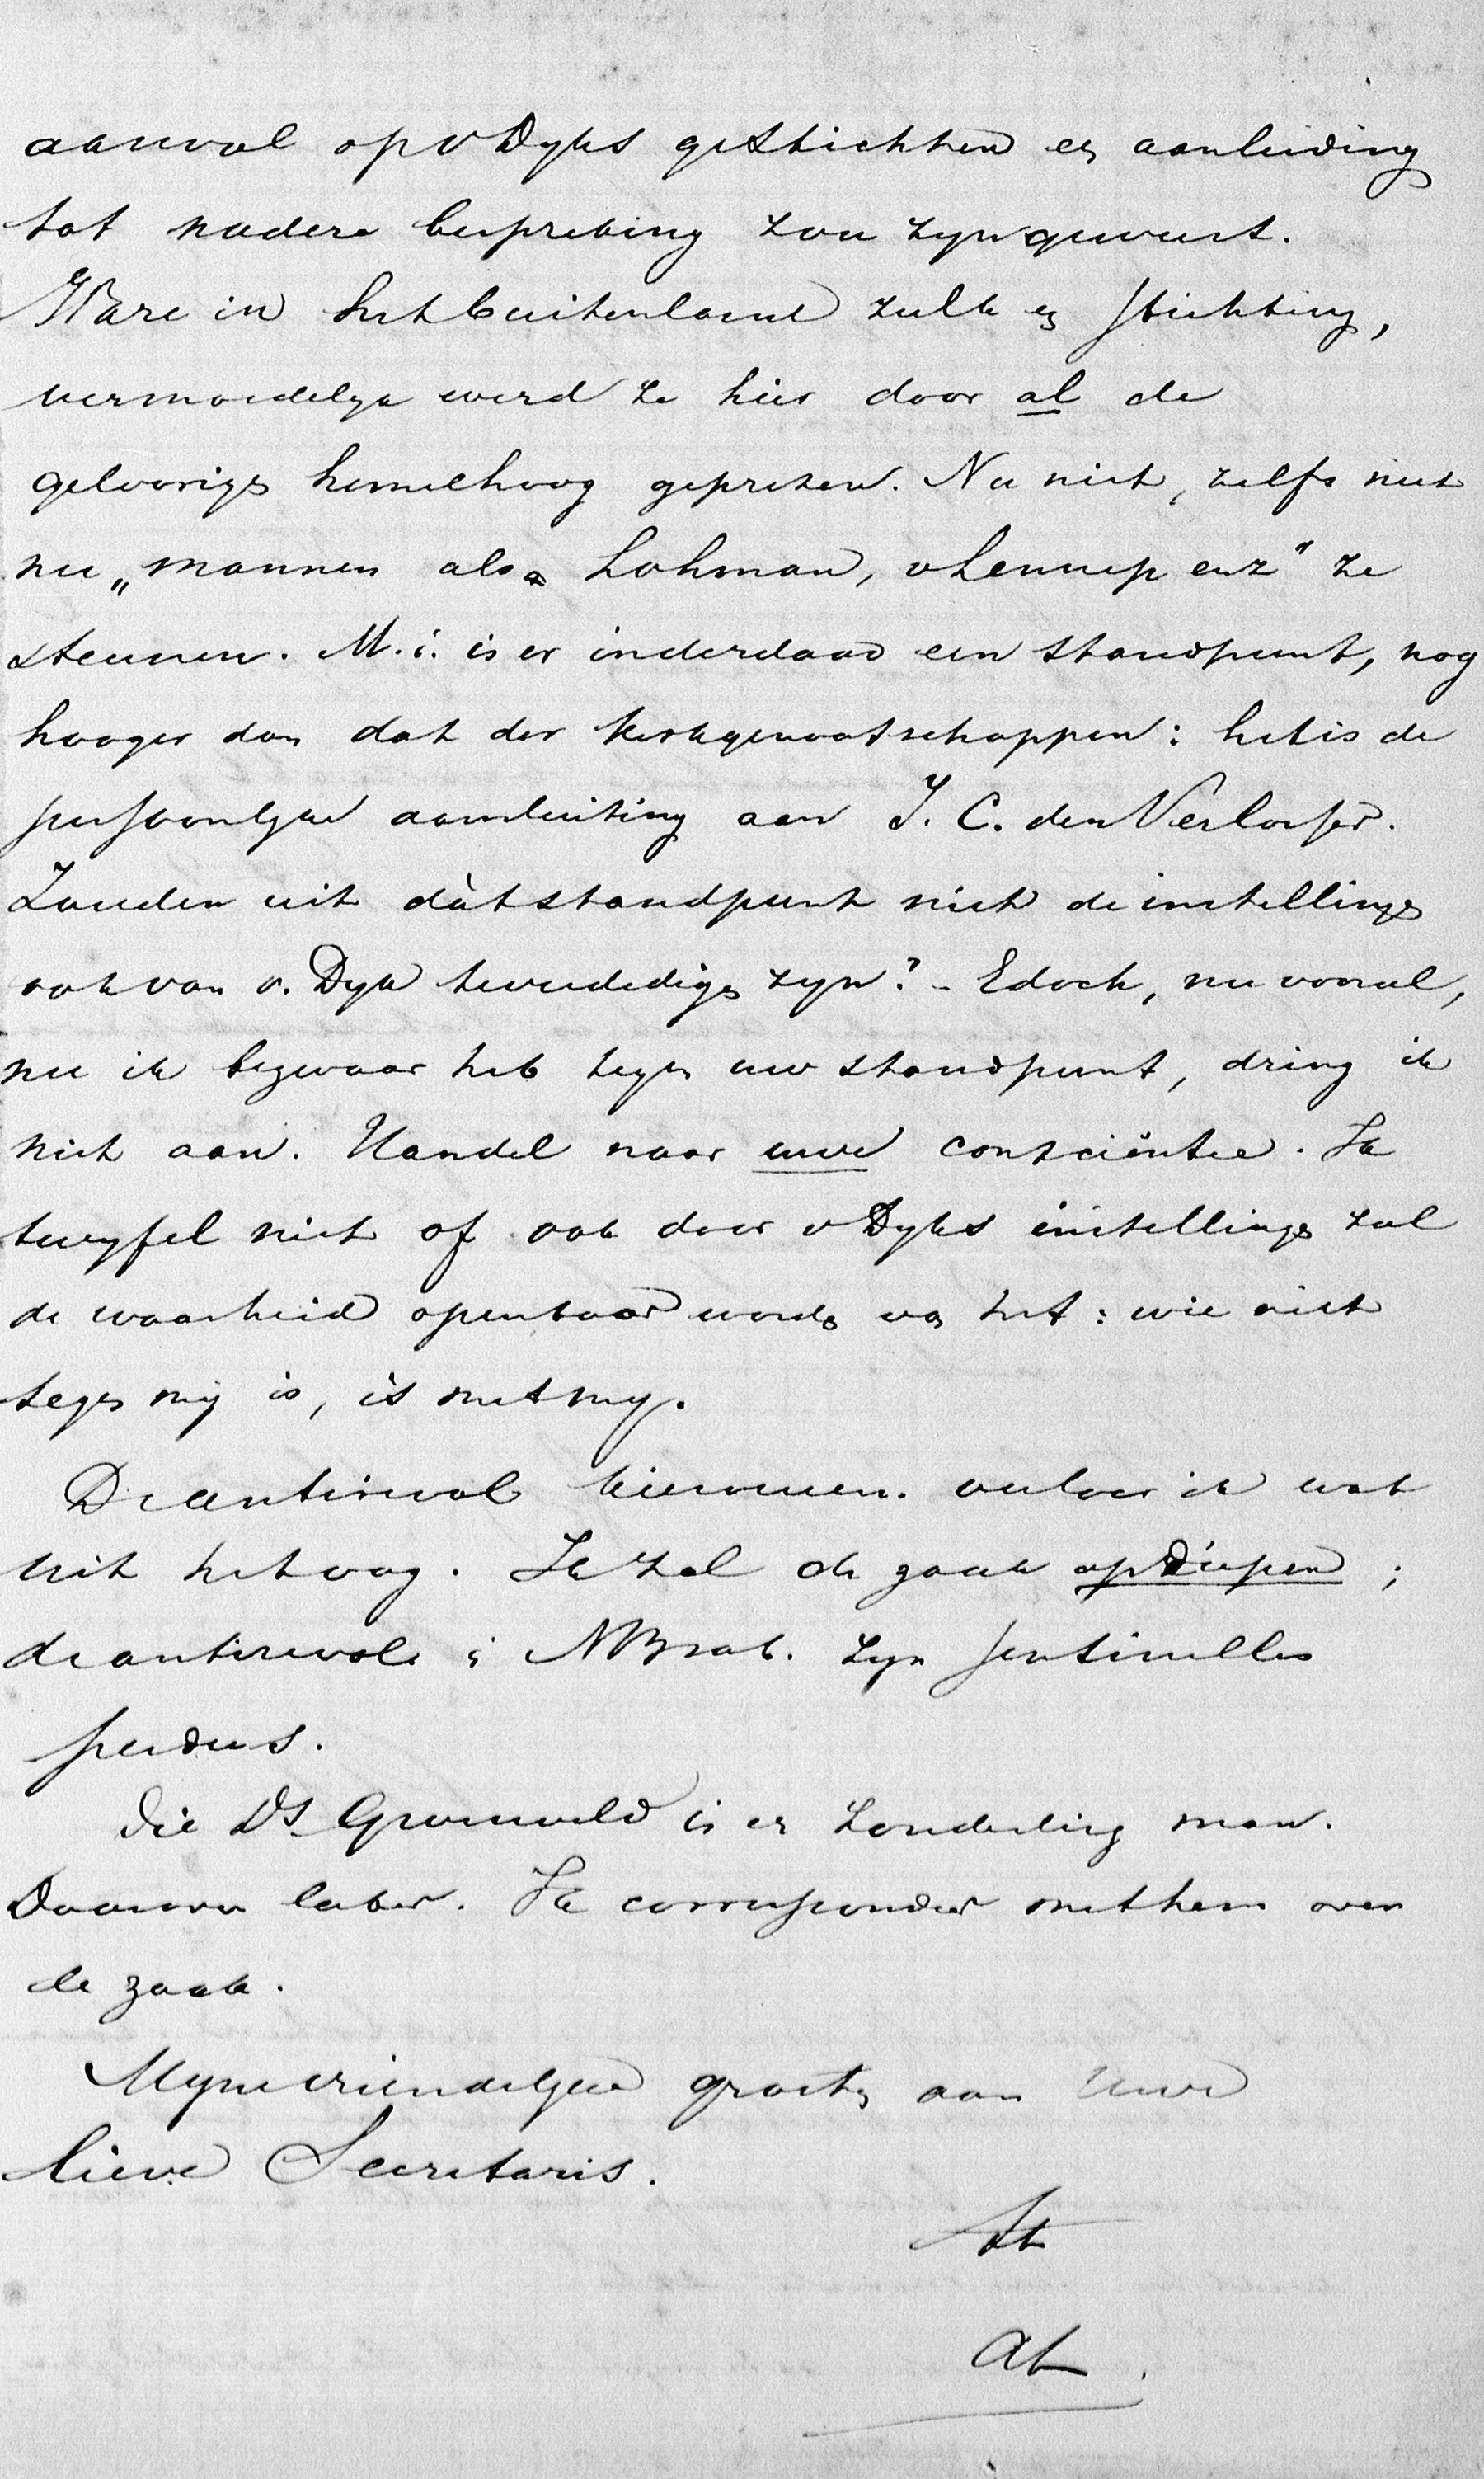 aanval op v Dyks gestichten een aanleiding
tot nadere bespreking zou zyn geweest.
Ware in het buitenland zulk een stichting,
vermoedelyk werd ze hier door al de
geloovigen hemelhoog geprezen. Nu niet, zelfs niet
nu „mannen als Lohman, v Lennep enz" ze
steunen. M. i. is er inderdaad een standpunt, nog
hooger dan dat der kerkgenootschappen: het is de
persoonlyke aansluiting aan J. C. den Verlosser.
Zouden uit dàt standpunt niet de instellingen
ook van v. Dyk te verdedigen zyn? - Edoch, nu vooral,
nu ik bezwaar heb tegen uw standpunt, dring ik
niet aan. Handel naar uwe consciëntie. Ik
twyfel niet of ook door v Dyks instellingen zal
de waarheid openbaar worden van het: wie niet
tegen my is, is met my.
De antirevol kiesvereen. verloor ik wat
uit het oog. Ik zal de zaak opdiepen;
de antirevols in NBrab. zyn sentinelles
perdues.
Die Ds Groeneveld is een zonderling man.
Daarover later. Ik correspondeer met hem over
de zaak.
Myne vriendelyke groeten aan Uwe
lieve Secretaris.